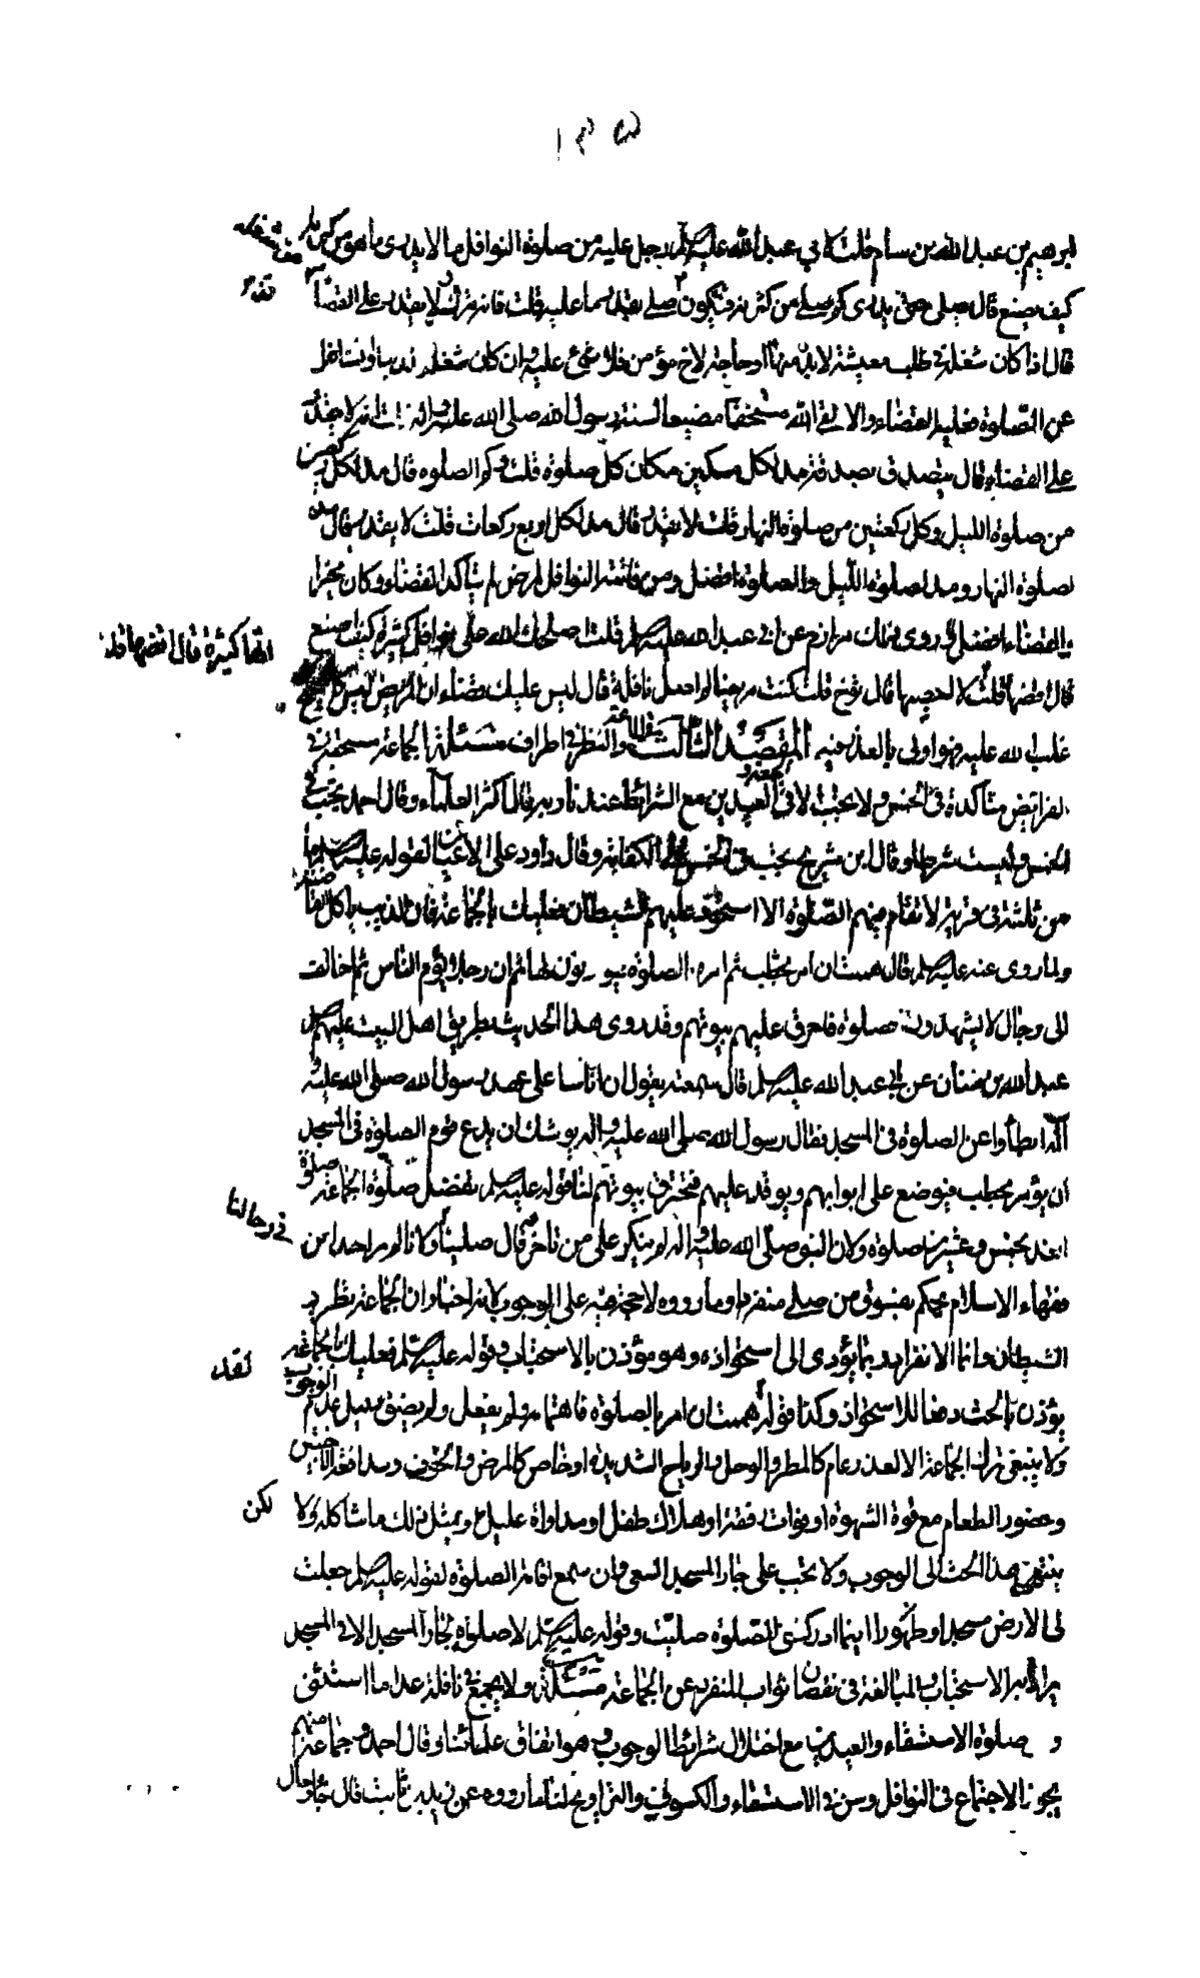 ١٣٥
ابرهيم بن عبد الله بن سام قلت لابي عبد الله عليه السلم رجل عليه من صلوة النوافل ما لا يدرى ما هو من كثرته
كيف يصنع قال يصلى حتى لا يدرى كم صلى من كثرته فيكون صلى بقدر ما عليه قلت فانه ترك ولا يقدر على القضاء
تقدم
قال اذا كان شغله فى طلب معيشة لا بد منها او حاجة لاخ مؤمن فلا شئ عليه وان كان شغله لدنيا وتشاغل
عن الصلوة فعليه القضاء والا لقى الله مستخفا مضيعا لسنة رسول الله صلى الله عليه واله قلت فانه لا يقدر
على القضاء قال يتصدق بصدقة مد لكل مسكين مكان كل صلوة قلت وكم الصلوة قال مد لكل ركعتين
من صلوة الليل وكل ركعتين من صلوة النهار قلت لا يقدر قال مد لكل اربع ركعات قلت لا يقدر قال مد
لصلوة النهار ومد لصلوة الليل والصلوة افضل ومن فاتته النوافل لمرض لم يتأكد القضاء وكان مخيرا
والقضاء افضل روى ذلك مرازم عن ابى عبد الله عليه السلم قلت اصلحك الله على نوافل كثيرة كيف اصنع
قال اقضها قلت لا احصيها قال توخ قلت كنت مريضا لم اصل نافلة قال ليس عليك قضاء ان المريض ليس كالصحيح
انها كثيرة قال اقضها قلت
غلب الله عليه فهو اولى بالعذر فيه المقصد الثالث فى الجماعة والنظر فى اطراف مسئلة الجماعة مستحبة فى
الفرائض متأكدة فى الخمس ولا يجب الا فى الجمعة والعيدين مع الشرائط عندنا وبه قال اكثر العلماء وقال احمد يجب فى
الخمس وليست شرطا وقال ابن شريح يجب فى الخمس على الكفاية وقال داود على الاعيان لقوله عليه السلم ما
من ثلثة فى قرية لا تقام فيهم الصلوة الا استحوذ عليهم الشيطان فعليك بالجماعة فان الذيب ياكل القاصية
ولما روى عنه عليه السلم قال هممت ان امر بحطب ثم امر بالصلوة فيؤذن لها ثم امر رجلا يؤم الناس ثم اخالف
الى رجال لا يشهدون صلوة فاحرق عليهم بيوتهم وقد روى هذا الحديث بطريق اهل البيت عليهم السلم
عبد الله بن سنان عن ابى عبد الله عليه السلم قال سمعته يقول ان اناسا على عهد رسول الله صلى الله عليه و
آله ابطأوا عن الصلوة فى المسجد فقال رسول الله صلى الله عليه واله يوشك ان يدع قوم الصلوة فى المسجد
ان يؤمر بحطب فيوضع على ابوابهم ويوقد عليهم فتحرق بيوتهم لنا قوله عليه السلم تفضل صلوة الجماعة صلوة
الفذ بخمس وعشرين صلوة ولان النبى صلى الله عليه واله لم ينكر على من تأخر قال صلينا وكانا لم يراحد من
فى رحالنا
فقهاء الاسلام يحكم بفسوق من صلى منفردا وما رووه لا حجة فيه على الوجوب لانه اخبار ان الجماعة يطرد
الشيطان وانما الانفراد ربما يؤدى الى استحواذه وهو مؤذن بالاستحباب وقوله عليه السلم فعليك بالجماعة
يؤذن بالحث دفعا للاستحواذ وكذا قوله هممت ان امر بالصلوة فاهتمامه ولم يفعل ولم يضيق دليل عدم الوجوب
ولا ينبغى ترك الجماعة الا لعذر عام كالمطر والوحل والرياح الشديدة او خاص كالمرض والخوف ومدافعة الاخبثين
وحضور الطعام مع قوة الشهوة او فوات رفقة او هلاك طفل او مداواة عليل ويمثل ذلك ما شاكله ولا
لكن
ينتهى هذا الحث الى الوجوب ولا يجب على جار المسجد السعى وان سمع اقامة الصلوة لقوله عليه السلم جعلت
لى الارض مسجدا وطهورا اينما ادركتنى الصلوة صليت وقوله عليه السلم لا صلوة لجار المسجد الا فى المسجد
يراد به الاستحباب والمبالغة فى نقصان ثواب المنفرد عن الجماعة مسئلة ولا يجمع فى نافلة عدا ما استثنى
و صلوة الاستسقاء والعيدين مع اختلال شرائط الوجوب وهو اتفاق علمائنا وقال احمد وجماعة منهم
يجوز الاجتماع فى النوافل وسن فى الاستسقاء والكسوف والتراويح لنا ما رووه عن زيد بن ثابت قال جاء رجال